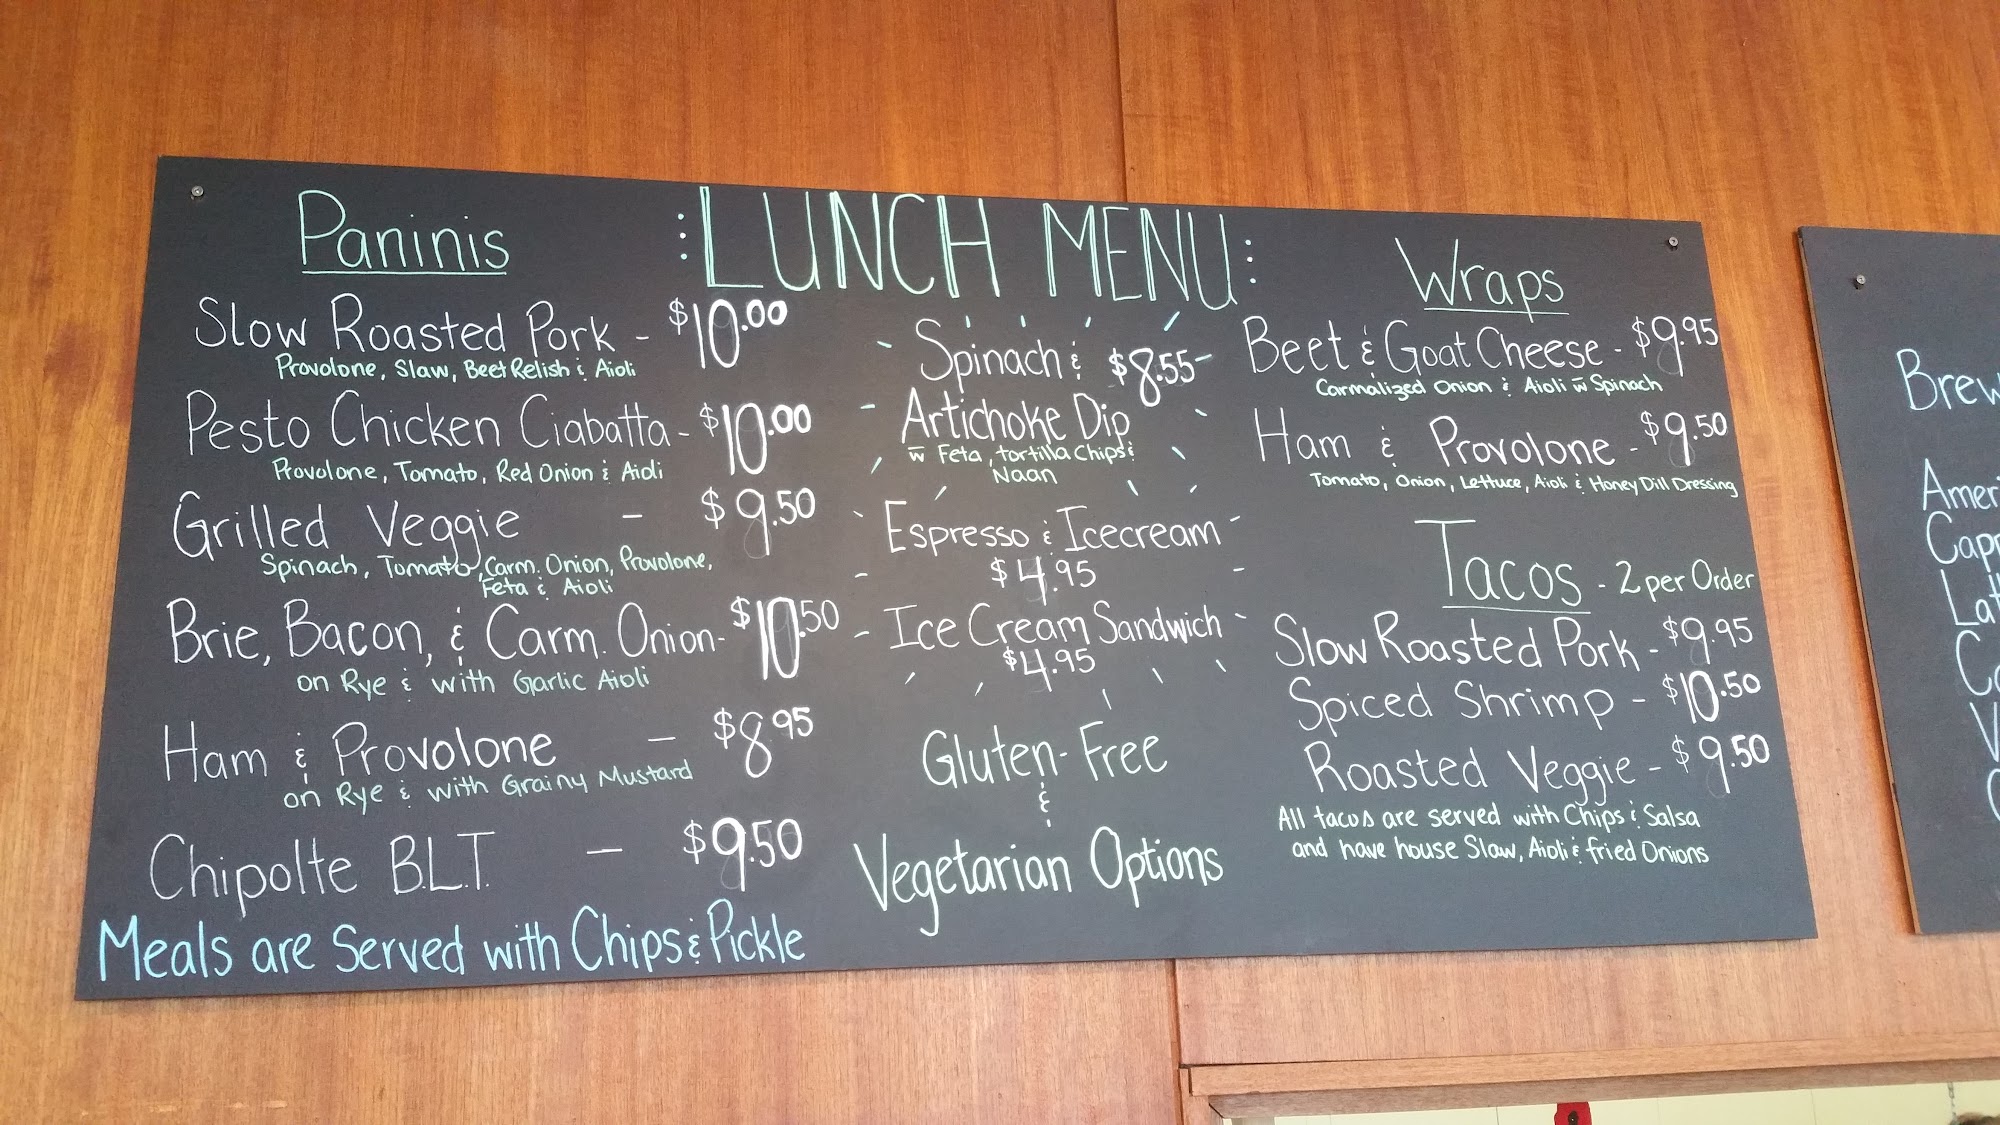 : LUNCH MENU :
Paninis
Slow Roasted Pork - $10.00
Provolone, Slaw, Beet Relish & Aioli
Pesto Chicken Ciabatta - $10.00
Provolone, Tomato, Red Onion & Aioli
Grilled Veggie - $9.50
Spinach, Tomato, Carm. Onion, Provolone,
Feta & Aioli
Brie, Bacon, & Carm. Onion - $10.50
on Rye & with Garlic Aioli
Ham & Provolone - $8.95
on Rye & with Grainy Mustard
Chipolte B.L.T. - $9.50
Meals are Served with Chips & Pickle
Spinach & $8.55
Artichoke Dip
w Feta, tortilla Chips &
Naan
Espresso & Icecream
$4.95
Ice Cream Sandwich
$4.95
Gluten-Free
&
Vegetarian Options
Wraps
Beet & Goat Cheese - $9.95
Carmalized Onion & Aioli w Spinach
Ham & Provolone - $9.50
Tomato, Onion, Lettuce, Aioli & Honey Dill Dressing
Tacos - 2 per Order
Slow Roasted Pork - $9.95
Spiced Shrimp - $10.50
Roasted Veggie - $9.50
All tacos are served with Chips & Salsa
and have house Slaw, Aioli & fried Onions
Brew
Ameri
Capp
Lat